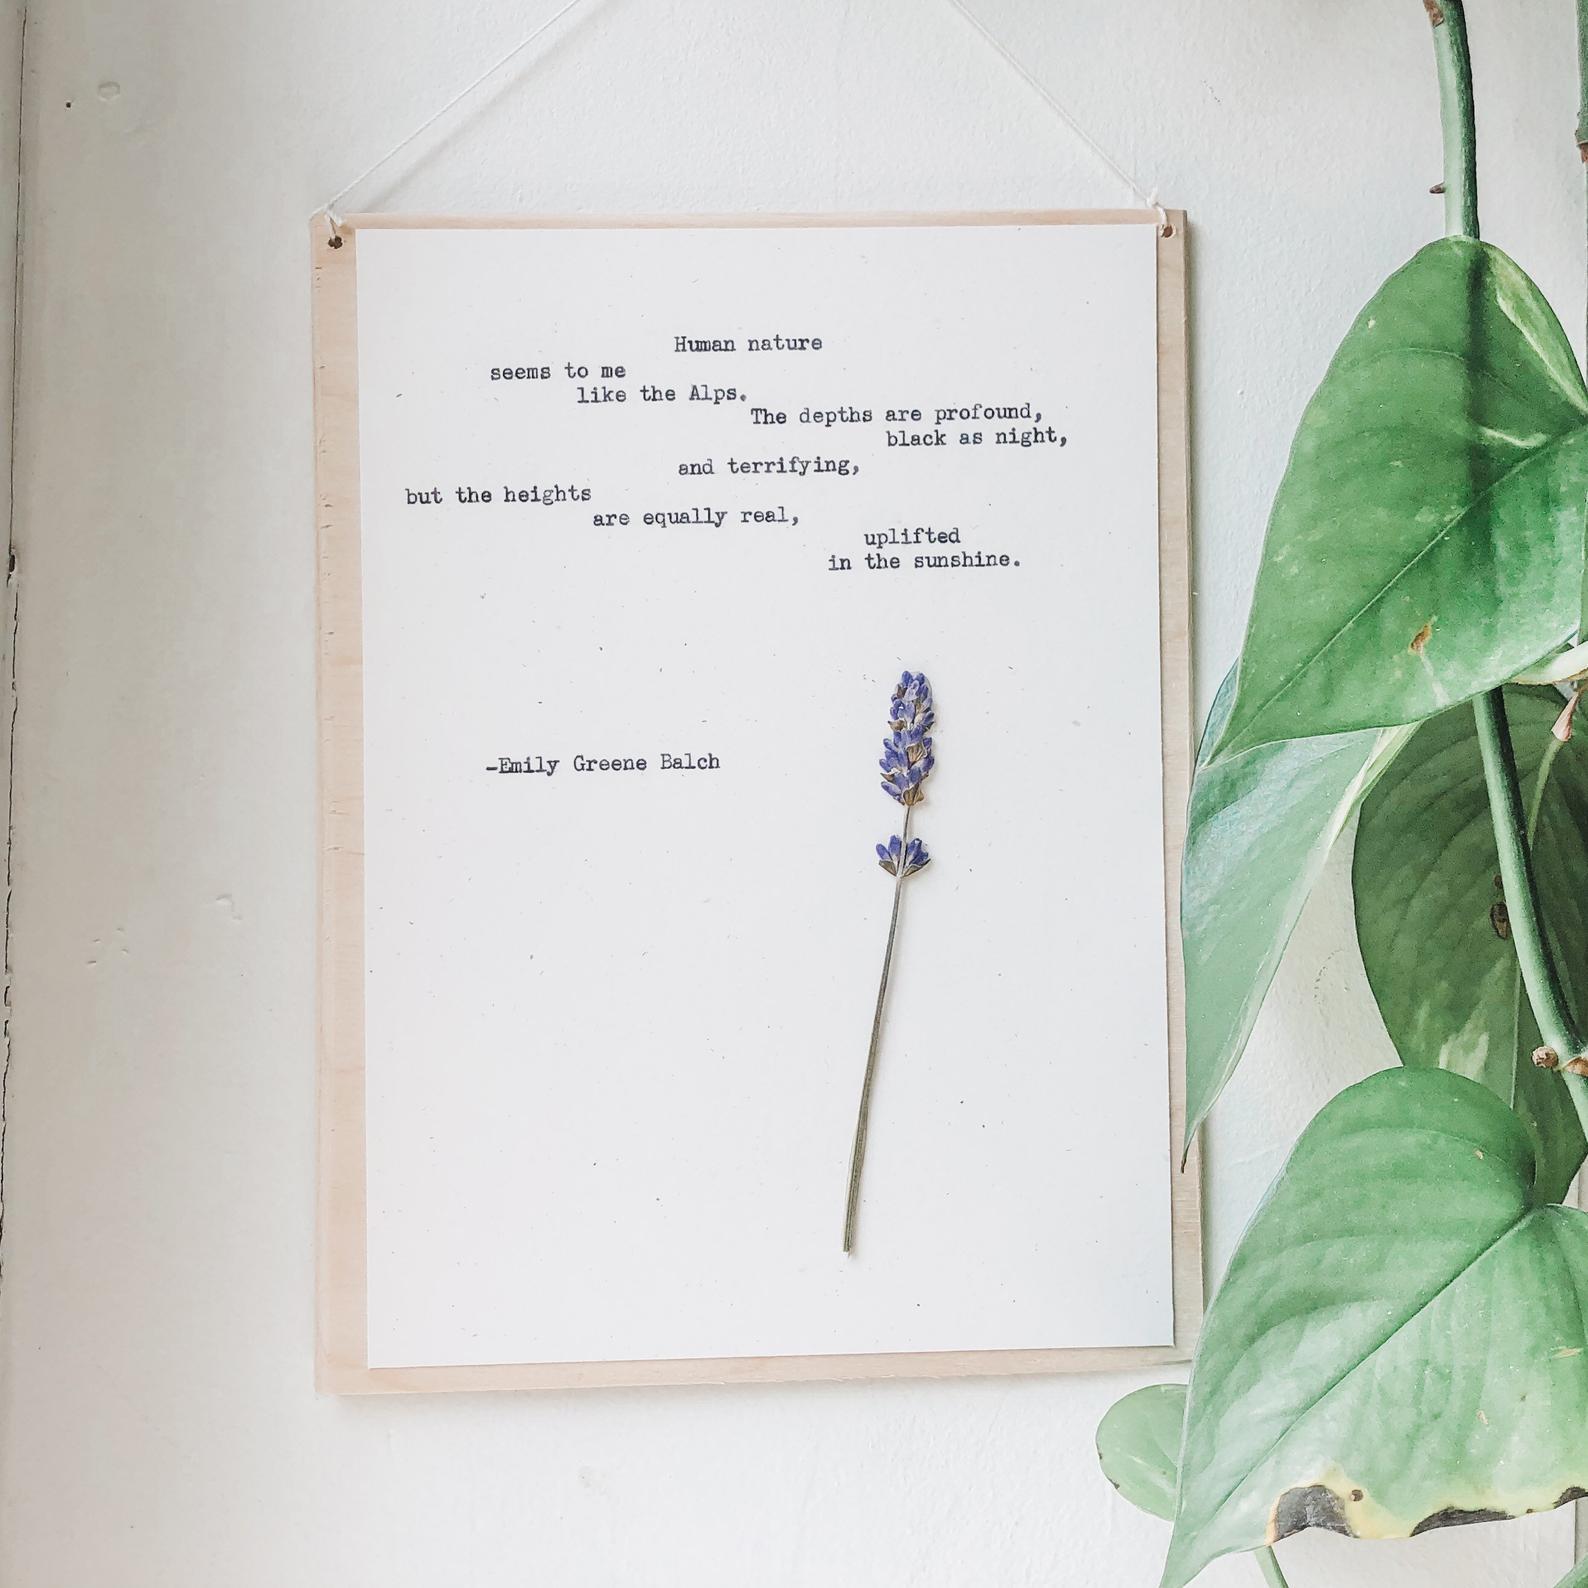 Human nature
seems to me
like the Alps.
The depths are profound,
black as night,
and terrifying,
but the heights
are equally real,
uplifted
in the sunshine.
-Emily Greene Balch